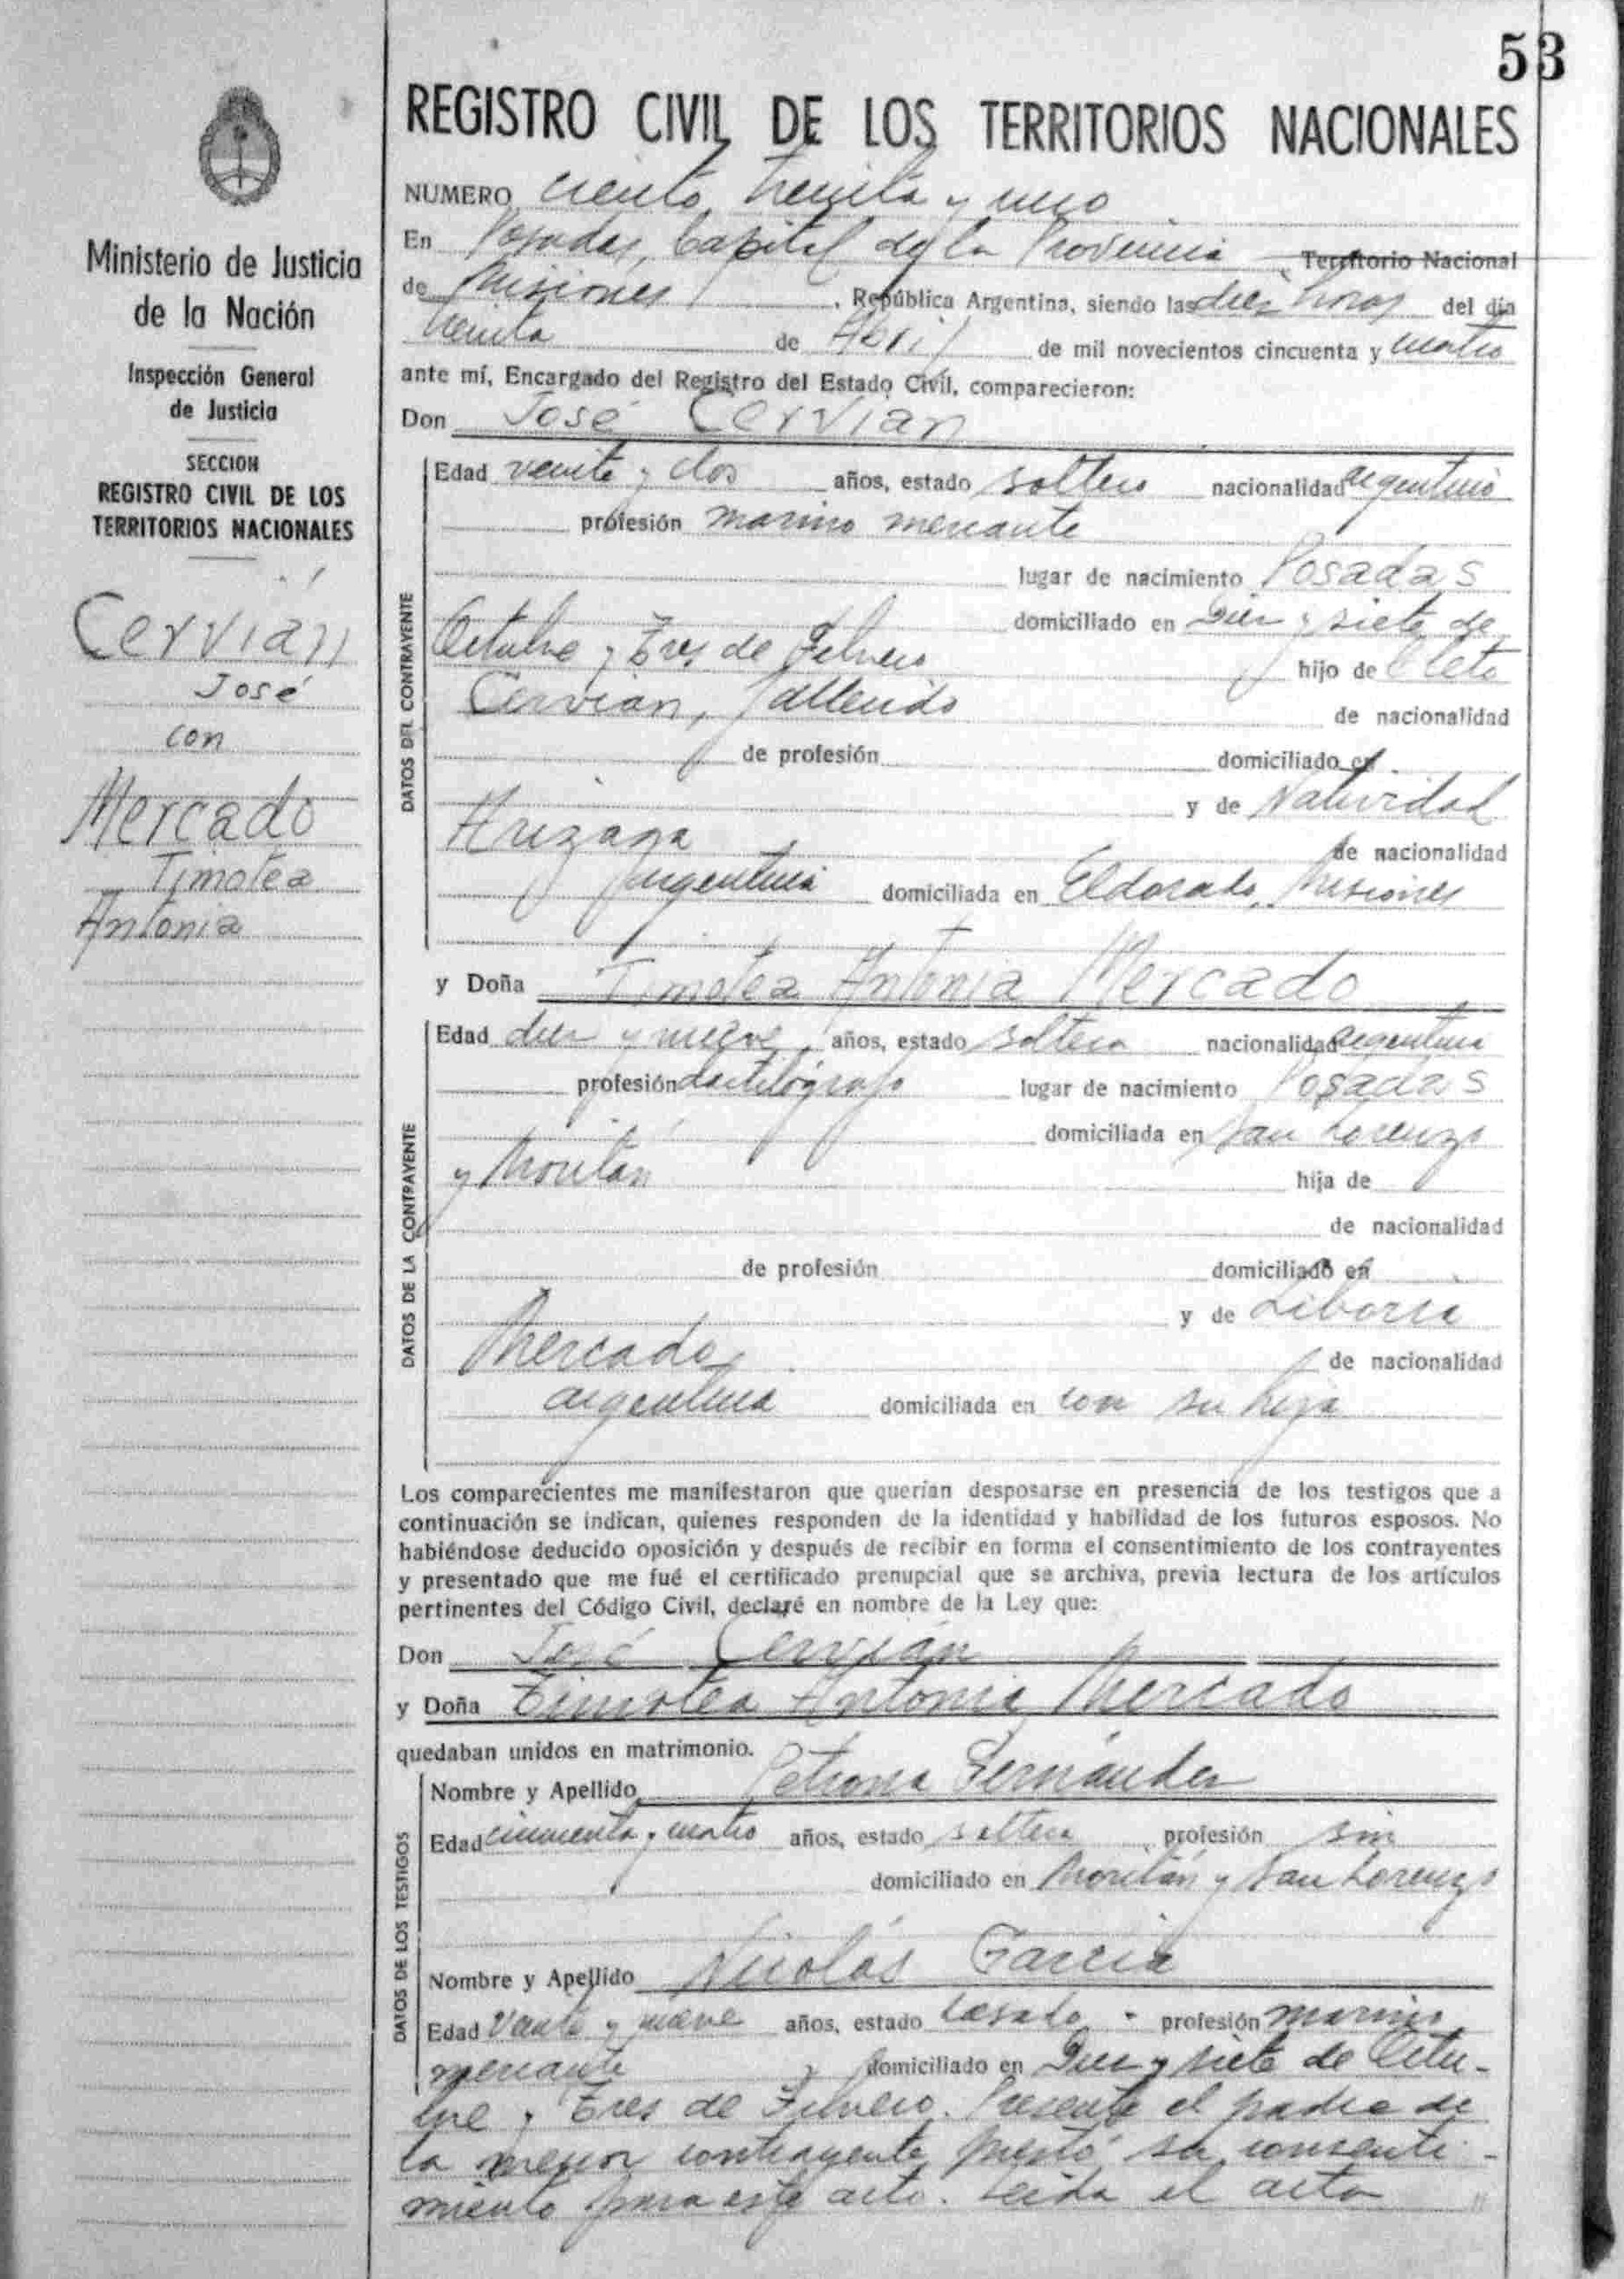 53
REGISTRO CIVIL DE LOS TERRITORIOS NACIONALES
Ministerio de Justicia
de la Nación
Inspección General
de Justicia
SECCION
REGISTRO CIVIL DE LOS
TERRITORIOS NACIONALES
Cervián
José
con
Mercado
Timotea
Antonia
NUMERO ciento treinta y uno
En Posadas, Capital de la Provincia Territorio Nacional
de Misiones, República Argentina, siendo las diez horas del día
treinta de Abril de mil novecientos cincuenta y cuatro
ante mí, Encargado del Registro del Estado Civil, comparecieron:
Don José Cervian
DATOS DEL CONTRAYENTE
Edad veinte y dos años, estado soltero nacionalidad argentino
profesión marino mercante
lugar de nacimiento Posadas
domiciliado en Diez y siete de
Octubre y Tres de Febrero hijo de Cleto
Cervian, fallecido de nacionalidad
de profesión domiciliado en
y de Natividad
de nacionalidad
argentina domiciliada en Eldorado, Misiones
y Doña Timotea Antonia Mercado
DATOS DE LA CONTRAYENTE
Edad diez y nueve años, estado soltera nacionalidad argentina
profesión dactilógrafo lugar de nacimiento Posadas
domiciliada en San Lorenzo
y Moritán hija de
de nacionalidad
de profesión domiciliado en
y de Liboria
Mercado de nacionalidad
argentina domiciliada en con su hija
Los comparecientes me manifestaron que querían desposarse en presencia de los testigos que a
continuación se indican, quienes responden de la identidad y habilidad de los futuros esposos. No
habiéndose deducido oposición y después de recibir en forma el consentimiento de los contrayentes
y presentado que me fué el certificado prenupcial que se archiva, previa lectura de los artículos
pertinentes del Código Civil, declaré en nombre de la Ley que:
Don José Cervián
y Doña Timotea Antonia Mercado
quedaban unidos en matrimonio.
DATOS DE LOS TESTIGOS
Nombre y Apellido Petrona Fernández
Edad cincuenta y cuatro años, estado soltera profesión sin
domiciliado en Moritán y San Lorenzo
Nombre y Apellido Nicolás García
Edad Veinte y nueve años, estado casado - profesión marino
mercante domiciliado en Diez y siete de Octu-
bre y Tres de Febrero. Presente el padre de
la menor contrayente prestó su consenti-
miento para este acto. Leída el acta "